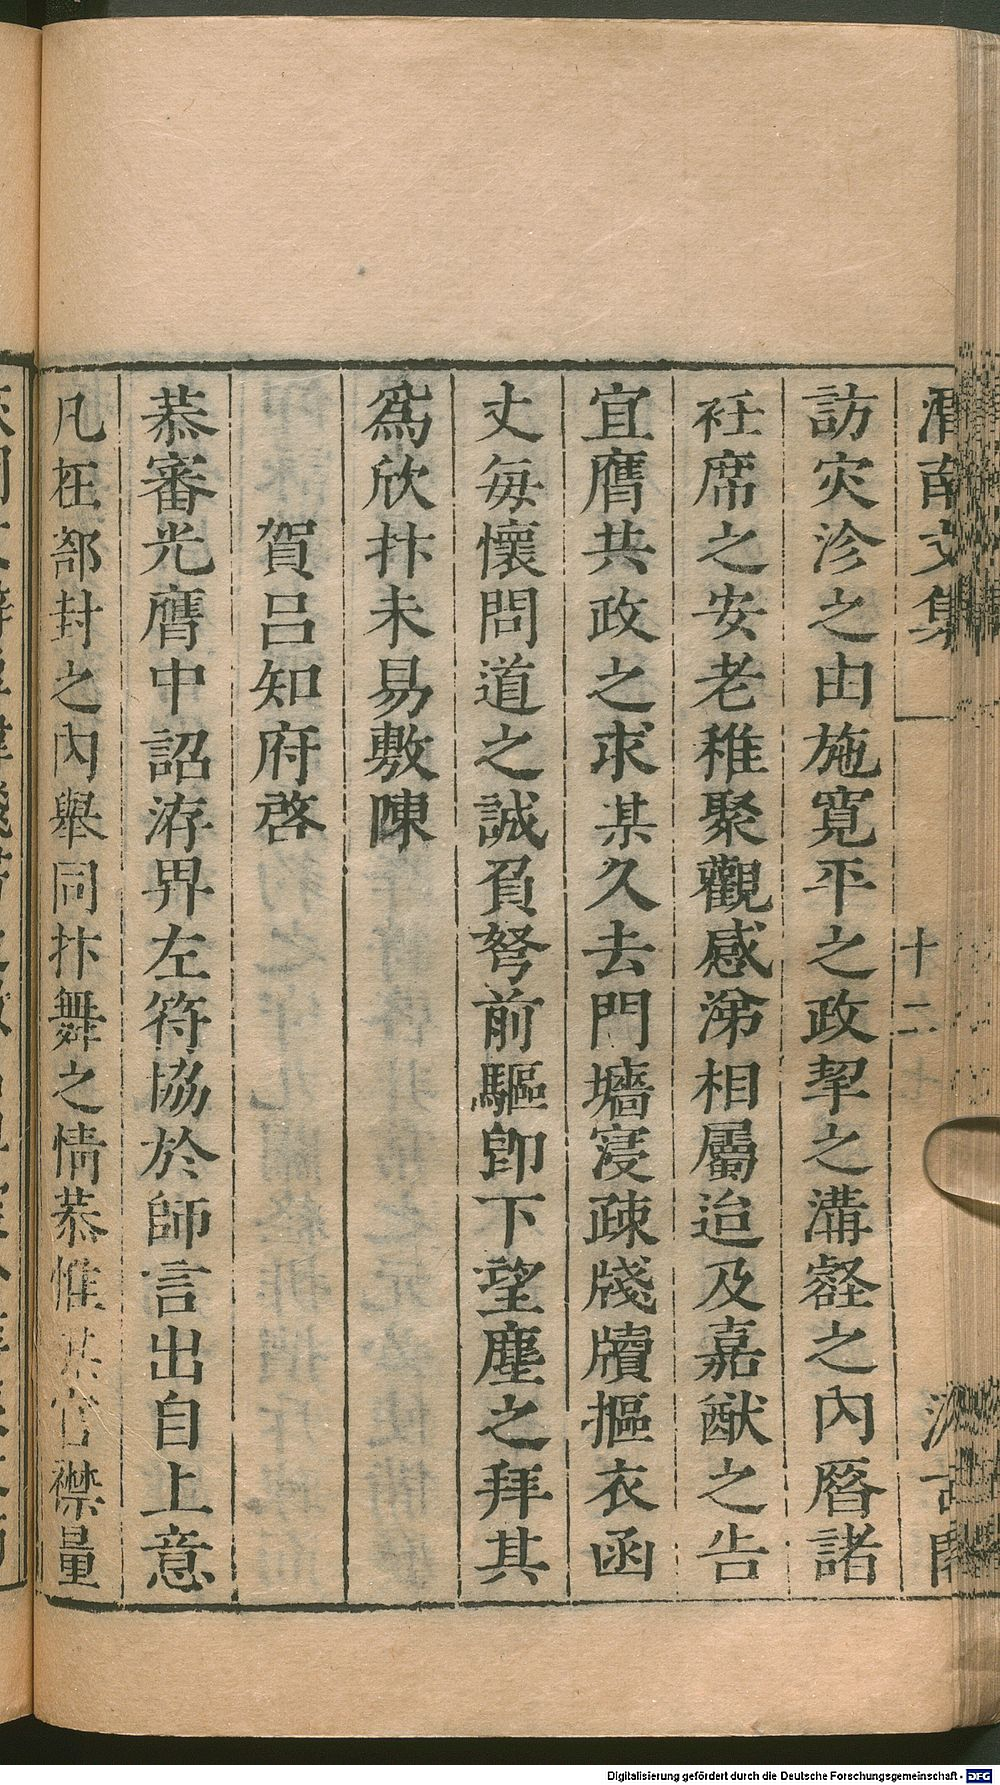 渭南文集 十二 七 汲古閣
訪灾沴之由施寬平之政挈之溝壑之內厝諸
衽席之安老稚聚觀感涕相屬迨及嘉猷之告
宜膺共政之求某久去門墻寖疎牋牘摳衣函
丈每懷問道之誠負弩前驅卽下望塵之拜其
爲欣抃未易敷陳
賀呂知府啓
恭審光膺中詔洊畀左符協於師言出自上意
凡在部封之內舉同抃舞之情恭惟某官襟量
Digitalisierung gefördert durch die Deutsche Forschungsgemeinschaft - DFG